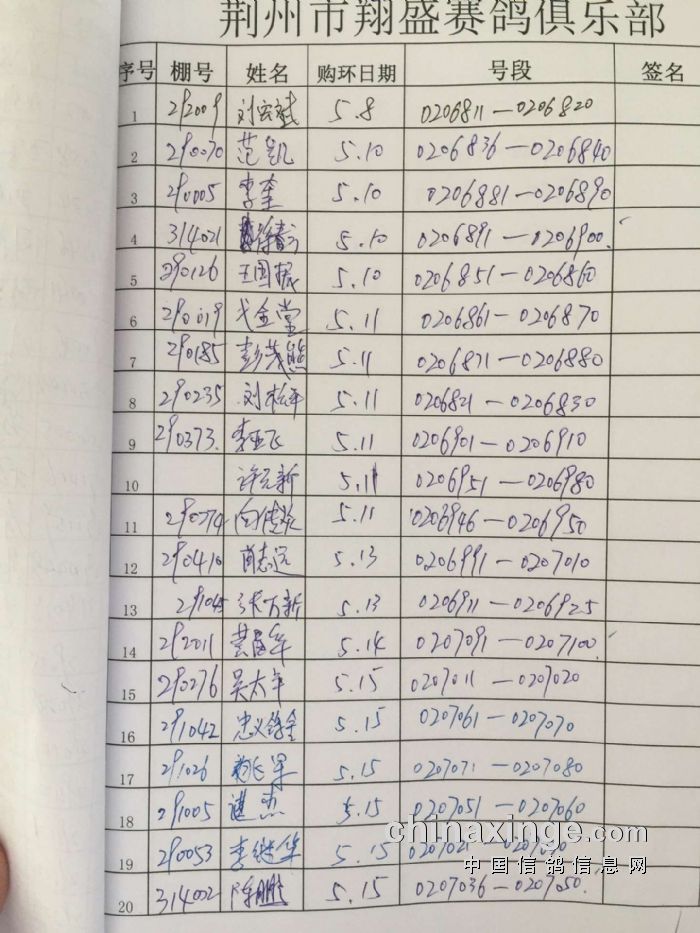 荆州市翔盛赛鸽俱乐部
序号 棚号 姓名 购环日期 号段 签名
1 292009 5.8 0206811—0206820
2 290070 范凯 5.10 0206836—0206840
3 290005 李奎 5.10 0206881—0206890
4 314021 5.10 0206891—0206900
5 290126 王国振 5.10 0206851—0206860
6 290019 弋金堂 5.11 0206861—0206870
7 290185 彭茂熊 5.11 0206871—0206880
8 290235 刘 5.11 0206821—0206830
9 290373. 李亚飞 5.11 0206901—0206910
10 许元新 5.11 0206951—0206980
11 290274 5.11 0206946—0206950
12 290410 肖志远 5.13 0206991—0207010
13 291045 张万新 5.13 0206911—0206925
14 292011 5.14 0207091—0207100
15 290276 吴太平 5.15 0207011—0207020
16 291042 忠义鸽舍 5.15 0207061—0207070
17 291026 姚军 5.15 0207071—0207080
18 291005 谌杰 5.15 0207051—0207060
19 290053 李继华 5.15
20 314002 陈鹏 5.15 0207036—0207050
chinaxinge.com
中国信鸽信息网